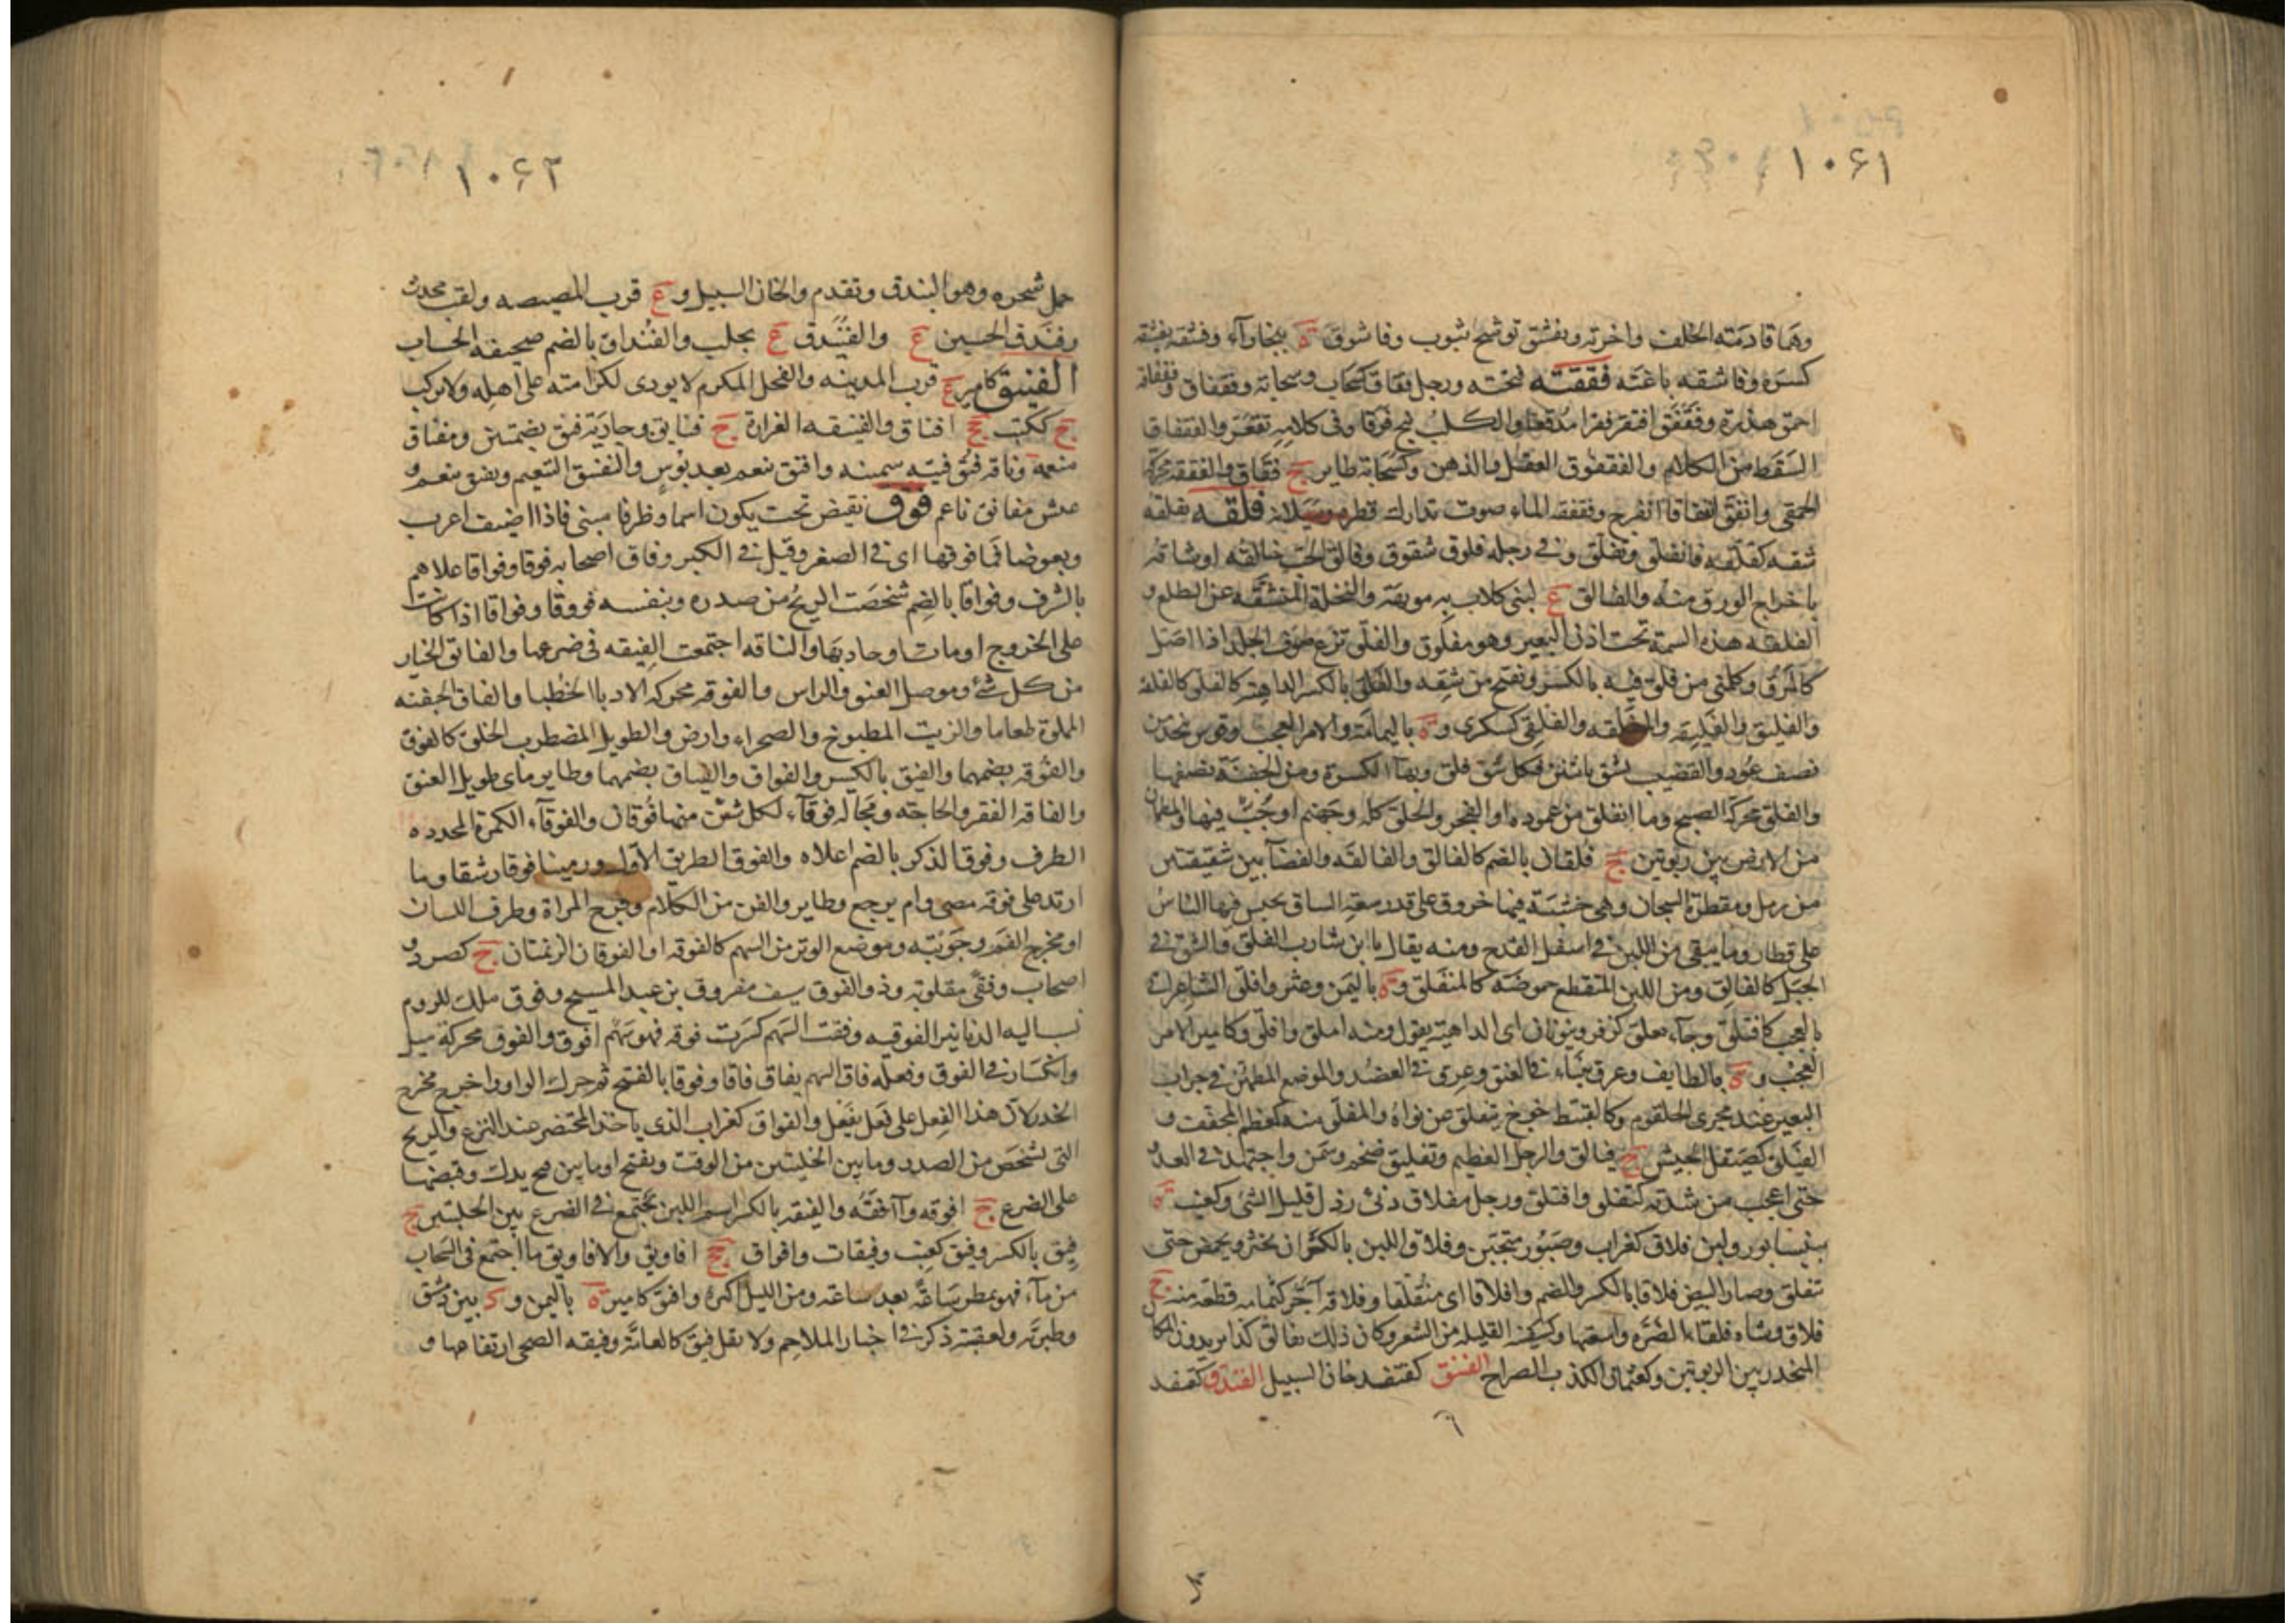 ١٠۶١
وهما قادمته الخلف واخرته وتفشق توشح بثوب وفاشوق ة ببخاراء وفشقه يفشقه
كسره وفاشقه باغته فققته فتحته ورجل فقاق كسحاب وسحابة وفقفاق وفقفاقة
احمق هذرة وفقفق افتقر فقرا مدقعا والكلب نبح فرقا وفى كلامه تقعر والفقفاق
السقط من الكلام والفقفوق العقل والذهن وكسحابة طاير ج فقاق والفققة محركة
الحمقى وانفق انفقاقا انفرج وفقفقة الماء صوت تدارك قطره وسيلانه فلقه يفلقه
شقه كفلقه فانفلق وتفلق وفى رجله فلوق شقوق وفالق الحب خالقه او شاقه
باخراج الورق منه والفالق ع لبنى كلاب به مويهة والنخلة المنشقة عن الطلع و
الفلقه هذه السمة تحت اذن البعير وهو مفلوق والفلق نزع صوف الجلد اذا اصل
كالمرق وكلمنى من فلق فيه بالكسر وتفتح من شقه والفلق بالكسر الداهية كالفلق كالفلقة
والفليق والفليقه والمفلقه والفلقى كسكرى و ة باليمامة والامر العجب وقوس تتخذ من
نصف عود والقضيب يشق باثنين فكل شق فلق وبهاء الكسرة ومن الجفنة نصفها
والفلق محركة الصبح وما انفلق من عموده او الفجر والخلق كله وجهنم او جب فيها والمطمان
من الارض بين ربوتين ج فلقان بالضم كالفالق والفالقة والفضاء بين شقيقتين
من رمل ومقطرة السجان وهى خشبة فيها خروق على قدر سعة الساق يحبس فيها الناس
على قطار وما يبقى من اللبن فى اسفل القدح ومنه يقال يا ابن شارب الفلق والشق فى
الجبل كالفالق ومن اللبن المتقطع حموضة كالمتفلق و ة باليمن وعثر وافلق الشاعر اتى
بالعجب كافتلق وجاء بعلق فلق كزفر وينونان اى الداهية يقول منه اعلق وافلق وكامير الامر
العجب و ة بالطايف وعرق ينباء فى العنق وعرق فى العضد والموضع المطمئن فى جران
البعير عند مجرى الحلقوم وكالقبيط خوخ يتفلق عن نواه والمفلق منه كمعظم المجفف و
الفيلق كصيقل الجيش ج فيالق والرجل العظيم وتفليق ضخم وسمن واجتهد فى العدو
حتى اعجب من شدته كتفلق وافتلق ورجل مفلاق دنئ رذل قليل الشئ وكعنب ة
بنيسابور ولبن فلاق كغراب وصبور متجبن وفلاق اللبن بالكسر ان يخثر ويحمض حتى
تفلق وصار البيض فلاقا بالكسر والضم وافلاقا اى متفلقا وفلاقة آجر كثمامة قطعة منه ج
فلاق وشاة فلقاء الضرة واسعتها وكسكينة القليلة من الشعر وكان ذلك بفالق كذا يريدون المكان
المنحدر بين الربوتين وكعثمان الكذب الصراح الفنتق كقنفذ خان السبيل الفندق كقنفذ
٦
١٠۶٢
حمل شجره وهو البندق وتقدم والخان السبيل و ع قرب المصيصه ولقب محدث
وفندق الحسين ع والفنيدق ع بحلب والفنداق بالضم صحيفة الحساب
الفنيق كامير ع قرب المدينه والفحل المكرم لا يوذى لكرامته على اهله ولا يركب
ج ككتب جج افناق والفنيقه الغرارة ج فنايق وجارية فنق بضمتين ومفناق
منعمة وناقة فنق فتيه سمينه وافنق تنعم بعد بؤس والتفنيق التنعيم وتفنق تنعم و
عيش مفانق ناعم فوق نقيض تحت يكون اسما وظرفا مبنى فاذا اضيف اعرب
وبعوضة فما فوقها اى فى الصغر وقيل فى الكبر وفاق اصحابه فوقا وفواقا علاهم
بالشرف وفواقا بالضم شخصت الريح من صدره وبنفسه فووقا وفواقا اذا كانت
على الخروج او مات او جاد بها والناقه اجتمعت الفيقه فى ضرعها والفائق الخيار
من كل شئ وموصل العنق والراس والفوقة محركة الادباء الخطباء والفاق الجفنه
المملوة طعاما والزيت المطبوخ والصحراء وارض والطويل المضطرب الخلق كالفوق
والفوقة بضمهما والفيق بالكسر والفواق والفياق بضمهما وطاير ماى طويل العنق
والفاقة الفقر والحاجة ومحالة فوقاء لكل شق منها فوقان والفوقاء الكمرة المحدده
الطرف وفوق الذكر بالضم اعلاه والفوق الطريق الاول ورمينا فوقا رشقا وما
ارتد على فوقه مضى ولم يرجع وطاير والفن من الكلام وفرج المراة وطرف اللسان
او مخرج الفم وجوبته وموضع الوتر من السهم كالفوقه او الفوقان الزنمتان ج كصرد و
اصحاب وفقى مقلوبه وذو الفوق سيف مفروق بن عبد المسيح وفوق ملك للروم
نسب اليه الدنانير الفوقيه وفقت السهم كسرت فوقه فهو سهم افوق والفوق محركة ميل
وانكسار فى الفوق وفعله فاق السهم يفاق فاقا وفوقا بالفتح ثم حرك الواو واخرج مخرج
الحذر لان هذا الفعل على فعل يفعل والفواق كغراب الذى ياخذ المحتضر عند النزع والريح
التى تشخص من الصدر وما بين الحلبتين من الوقت ويفتح او ما بين فتح يدك وقبضها
على الضرع ج افوقه وآفقة والفيقة بالكسر اسم اللبن يجتمع فى الضرع بين الحلبتين ج
فيق بالكسر وفيق كعنب وفيقات وافواق جج افاويق والافاويق ما اجتمع فى السحاب
من ماء فهو يمطر ساعة بعد ساعة ومن الليل اكثره وافيق كامير ة باليمن و د بين دمشق
وطبرية ولعقبته ذكر فى اخبار الملاحم ولا تقل فيق كالعامة وفيقة الضحى ارتفاعها و